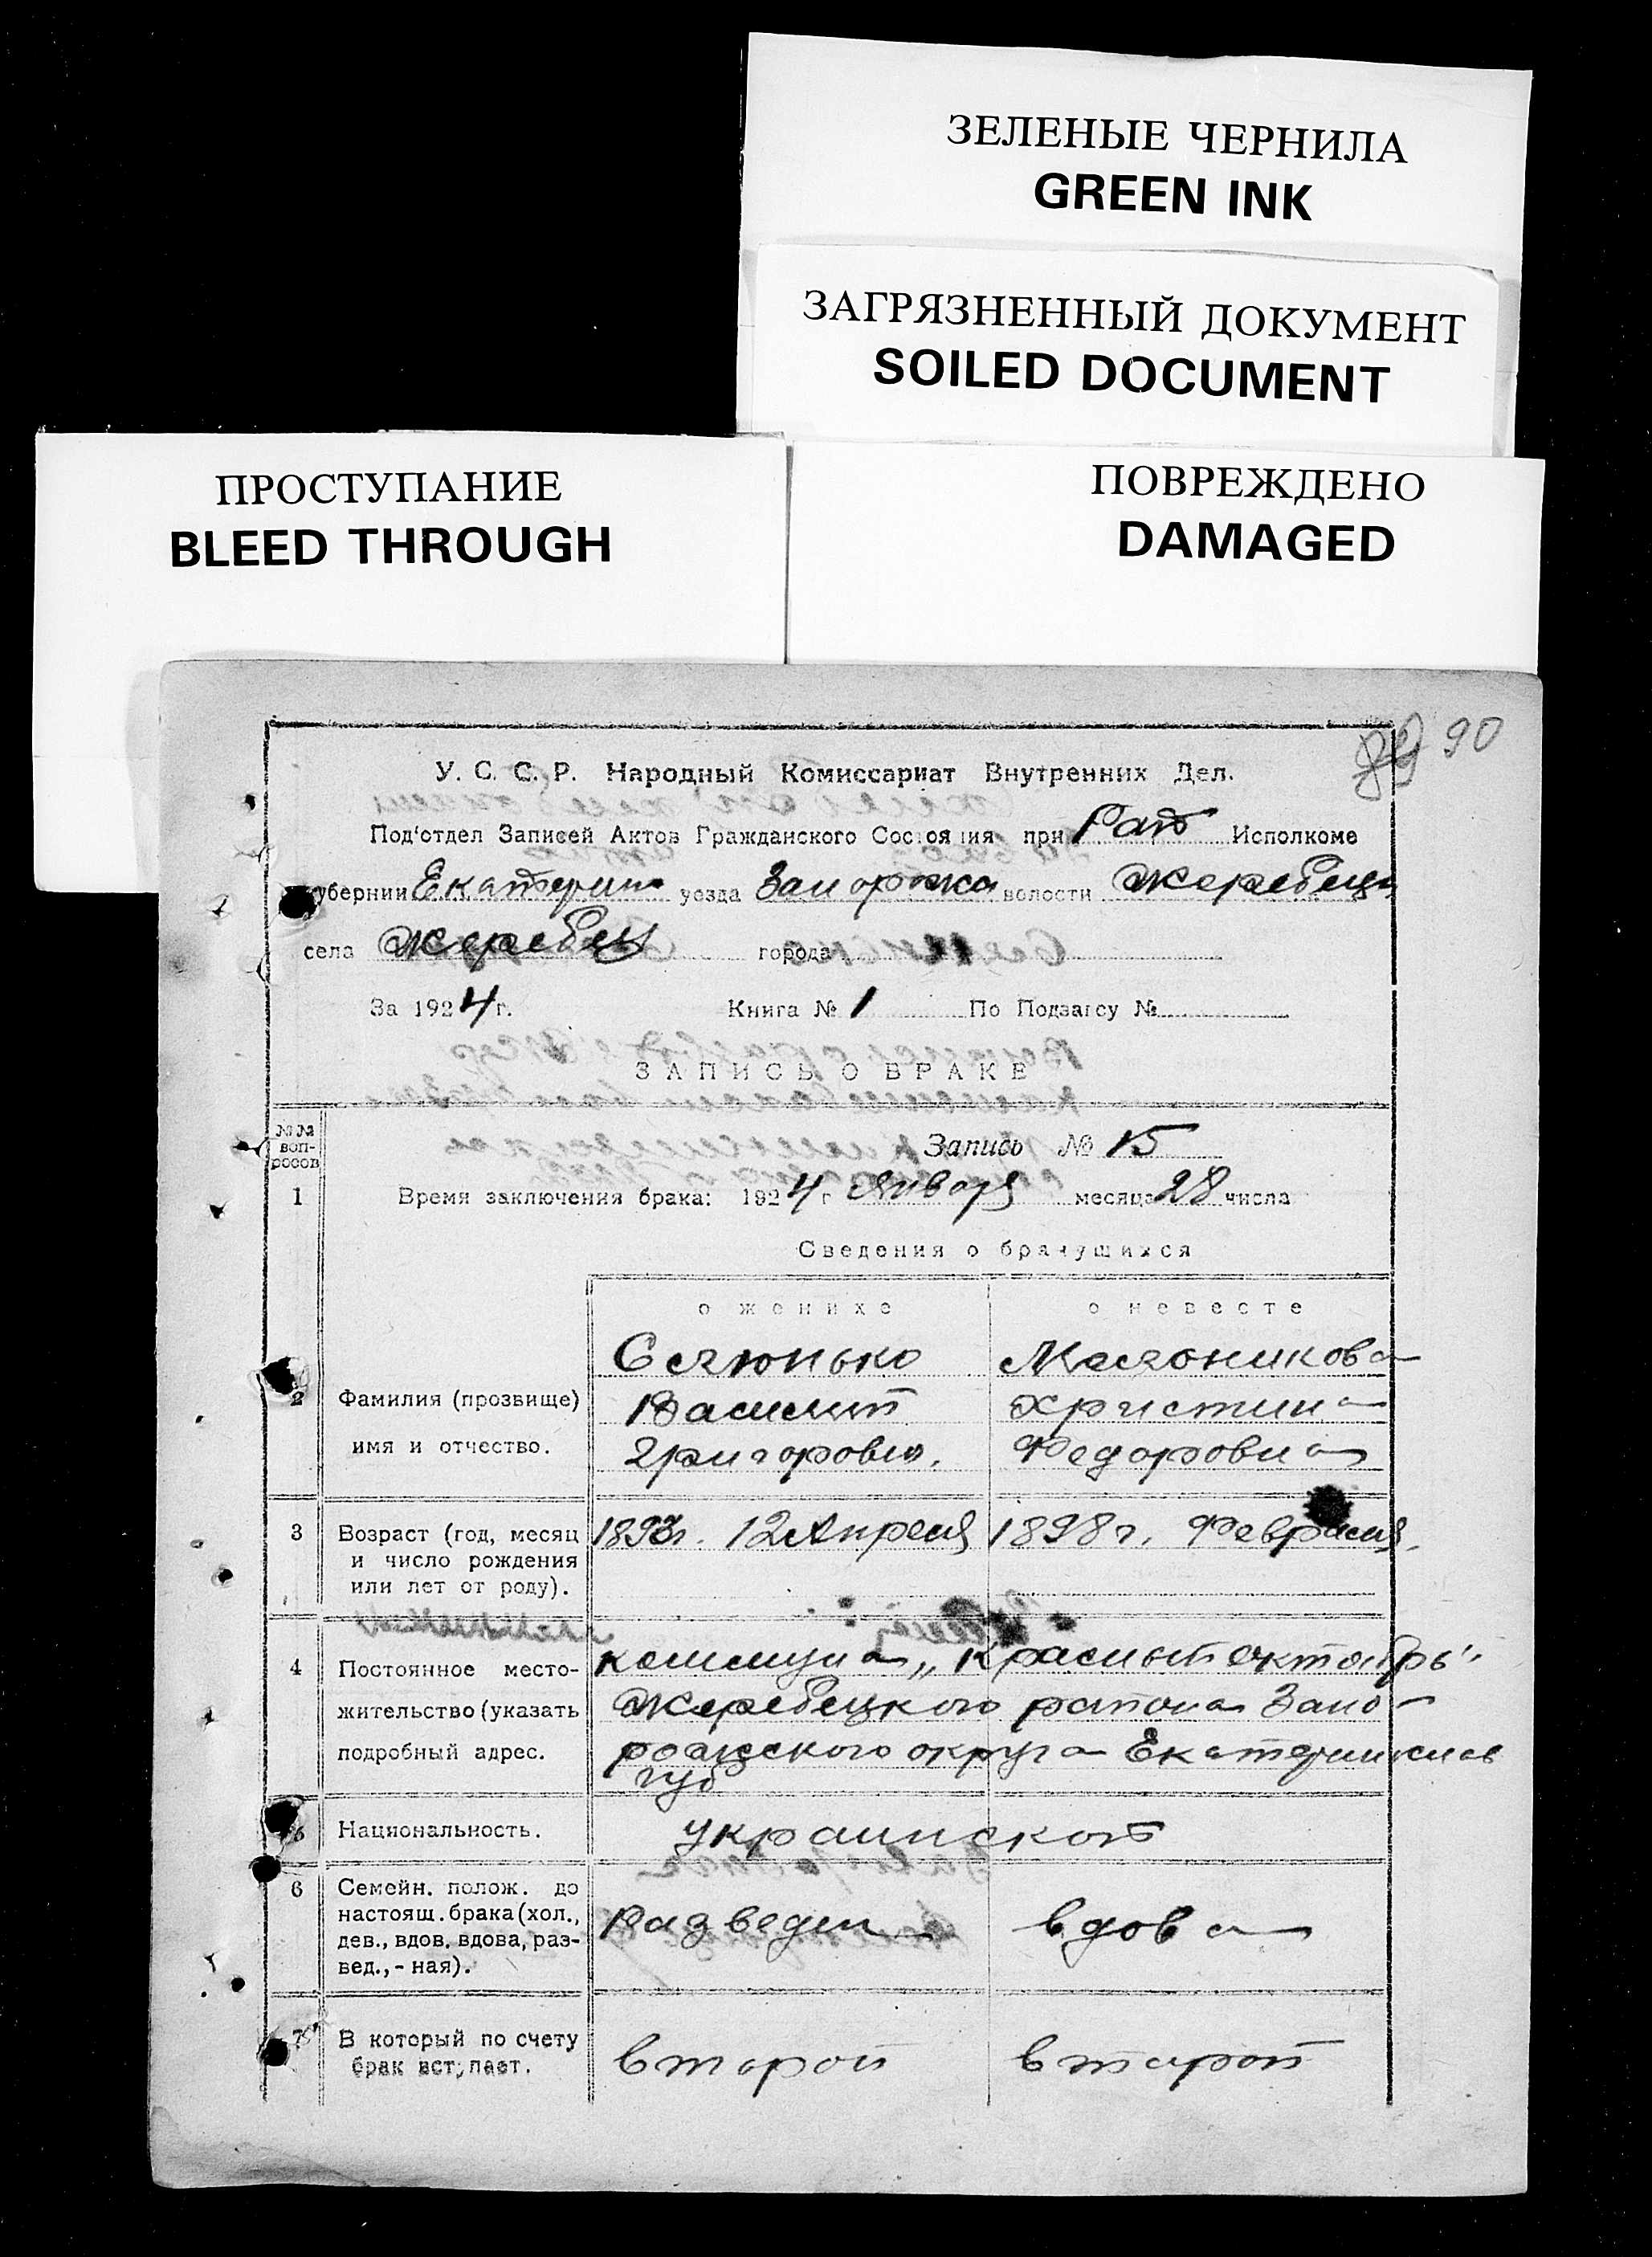 ЗЕЛЕНЫЕ ЧЕРНИЛА
GREEN INK
ЗАГРЯЗНЕННЫЙ ДОКУМЕНТ
SOILED DOCUMENT
ПРОСТУПАНИЕ
BLEED THROUGH
ПОВРЕЖДЕНО
DAMAGED
90
У. С. С. Р. Народный Комиссариат Внутренних Дел.
Под'отдел Записей Актов Гражданского Состояния при Рай Исполкоме
убернии Екатерин уезда Запорожс волости Жеребец
села Жеребец города
За 1924 г. Книга № 1 По Подзагсу №
ЗАПИСЬ О БРАКЕ
№№ вопросов
Запись № 15
1 Время заключения брака: 1924 г января месяца 28 числа
Сведения о брачущихся
о женихе о невесте
Масоникова
2 Фамилия (прозвище) Василий Христина
имя и отчество. Григоров. Федоровна
3 Возраст (год, месяц 1893г. 12 Апреля 1898 г. Февраля.
и число рождения
или лет от роду).
4 Постоянное место- коммуна „Красный октябрь"
жительство (указать Жеребецкого района Запо-
подробный адрес. рожского округа Екатеринослав
губ
5 Национальность. украинской
6 Семейн. полож. до
настоящ. брака (хол., разведен вдова
дев., вдов. вдова, раз-
вед., - ная).
7 В который по счету второй второй
брак вступает.